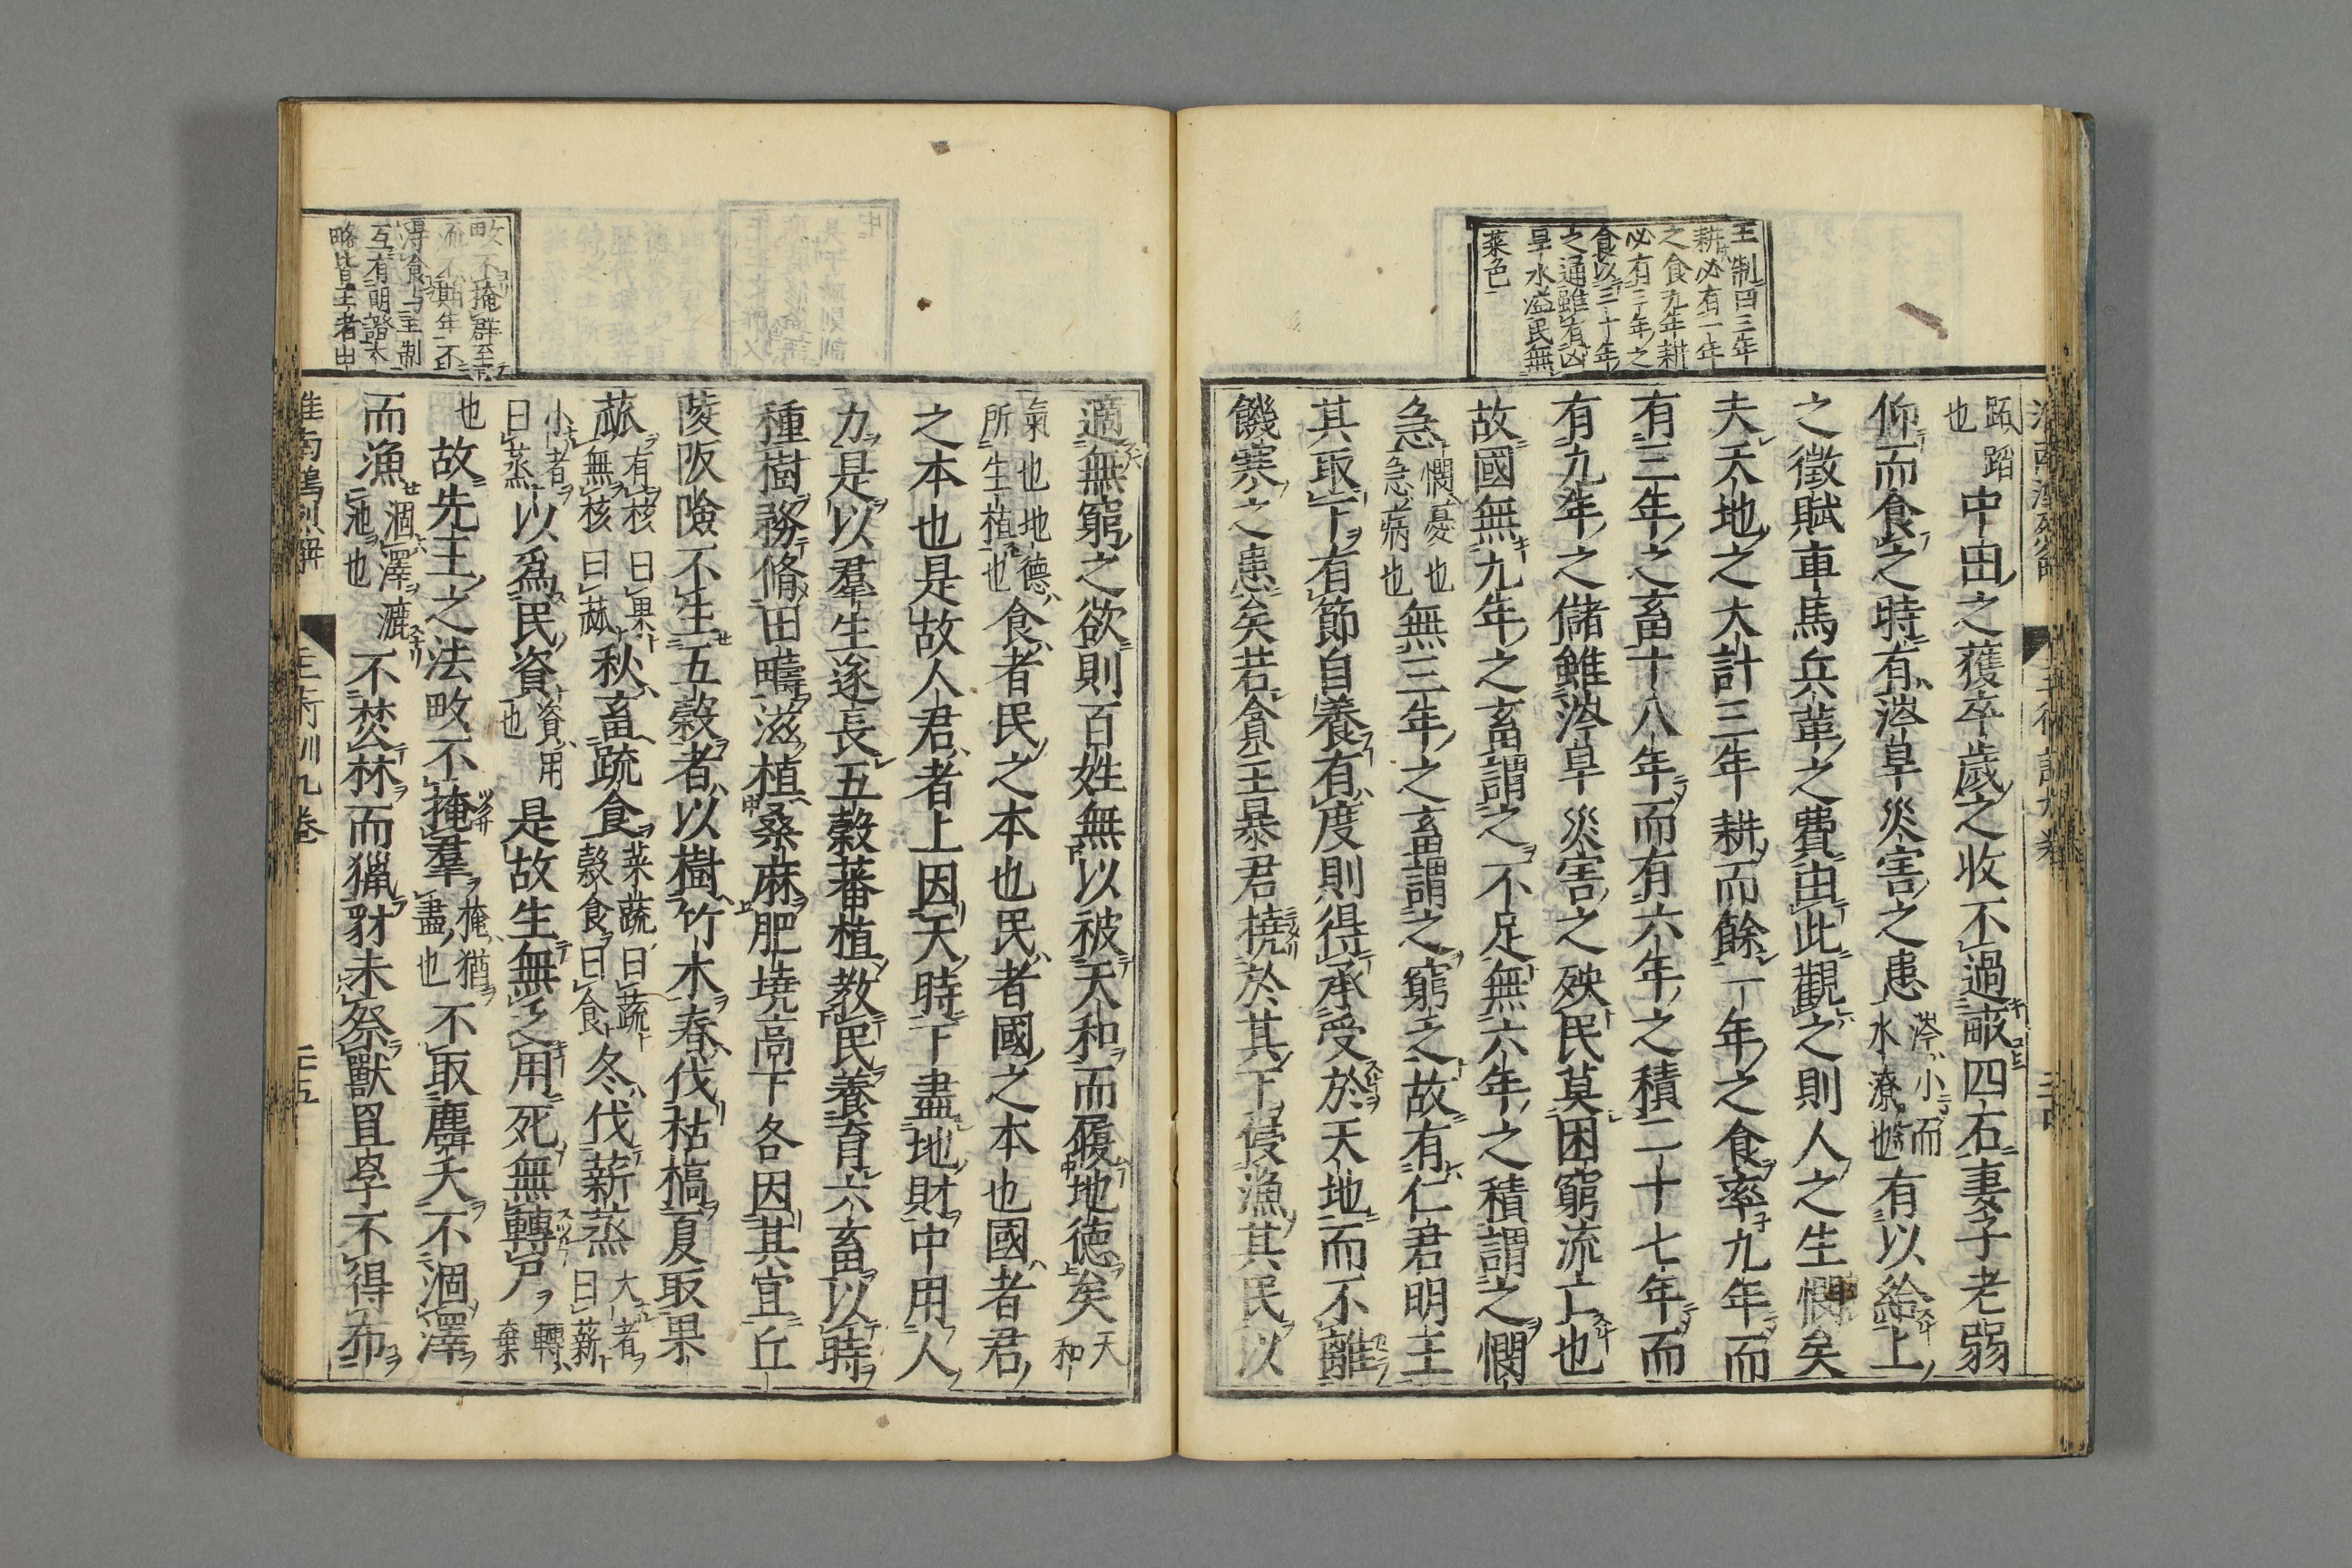 王制曰三年
耕必有一年
之食九年耕
必有三年之
食以三十年
之通雖有凶
旱水溢民無
菜色
蹈也中田之獲卒歲之收不過畞四石妻子老弱
仰而食之時有涔旱災害之患涔小而水潦也有以給上
之徵賦車馬兵革之費由此觀之則人之生憫矣
夫天地之大計三年耕而餘一年之食率九年而
有三年之畜十八年而有六年之積二十七年而
有九年之儲雖涔旱災害之殃民莫困窮流亡也
故國無九年之畜謂之不足無六年之積謂之憫
急憫憂也急病也無三年之畜謂之窮乏故有仁君明主
其取下有節自養有度則得承受於天地而不離
饑寒之患矣若貪主暴君撓於其下侵漁其民以
適無窮之欲則百姓無以被天和而履地德矣天和
氣也地德所生植也食者民之本也民者國之本也國者君
之本也是故人君者上因天時下盡地財中用人
力是以羣生遂長五穀蕃植教民養育六畜以時
種樹務脩田疇滋植桑麻肥墝高下各因其宜丘
陵阪險不生五穀者以樹竹木春伐枯槁夏取果
蓏有核曰果無核曰蓏秋畜疏食菜蔬曰蔬穀食曰食冬伐薪蒸大者曰薪
小者曰蒸以爲民資資用也是故生無乏用死無轉尸轉棄
也故先王之法畋不掩羣掩猶盡也不取麛夭不涸澤
而漁涸澤漉池也不焚林而獵豺未祭獸罝罦不得布
畋不掩群至
不期年不
得食与王制
互有明證大
略皆王者由
主術訓九卷